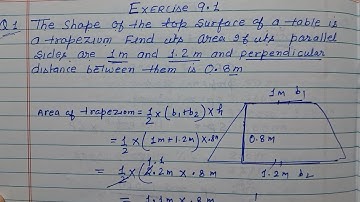 Exercise 9.1
Q1 The shape of the top surface of a table is
a trapezium Find its area If its parallel
sides are 1m and 1.2m and perpendicular
distance between them is 0.8m
1m b₁
Area of trapezium = 1/2 × (b₁+b₂) × h
= 1/2 × (1m+1.2m) × .8m
0.8m
1.1
= 1/2 × 2.2m × .8m
1.2m b₂
= 1.1m × .8m